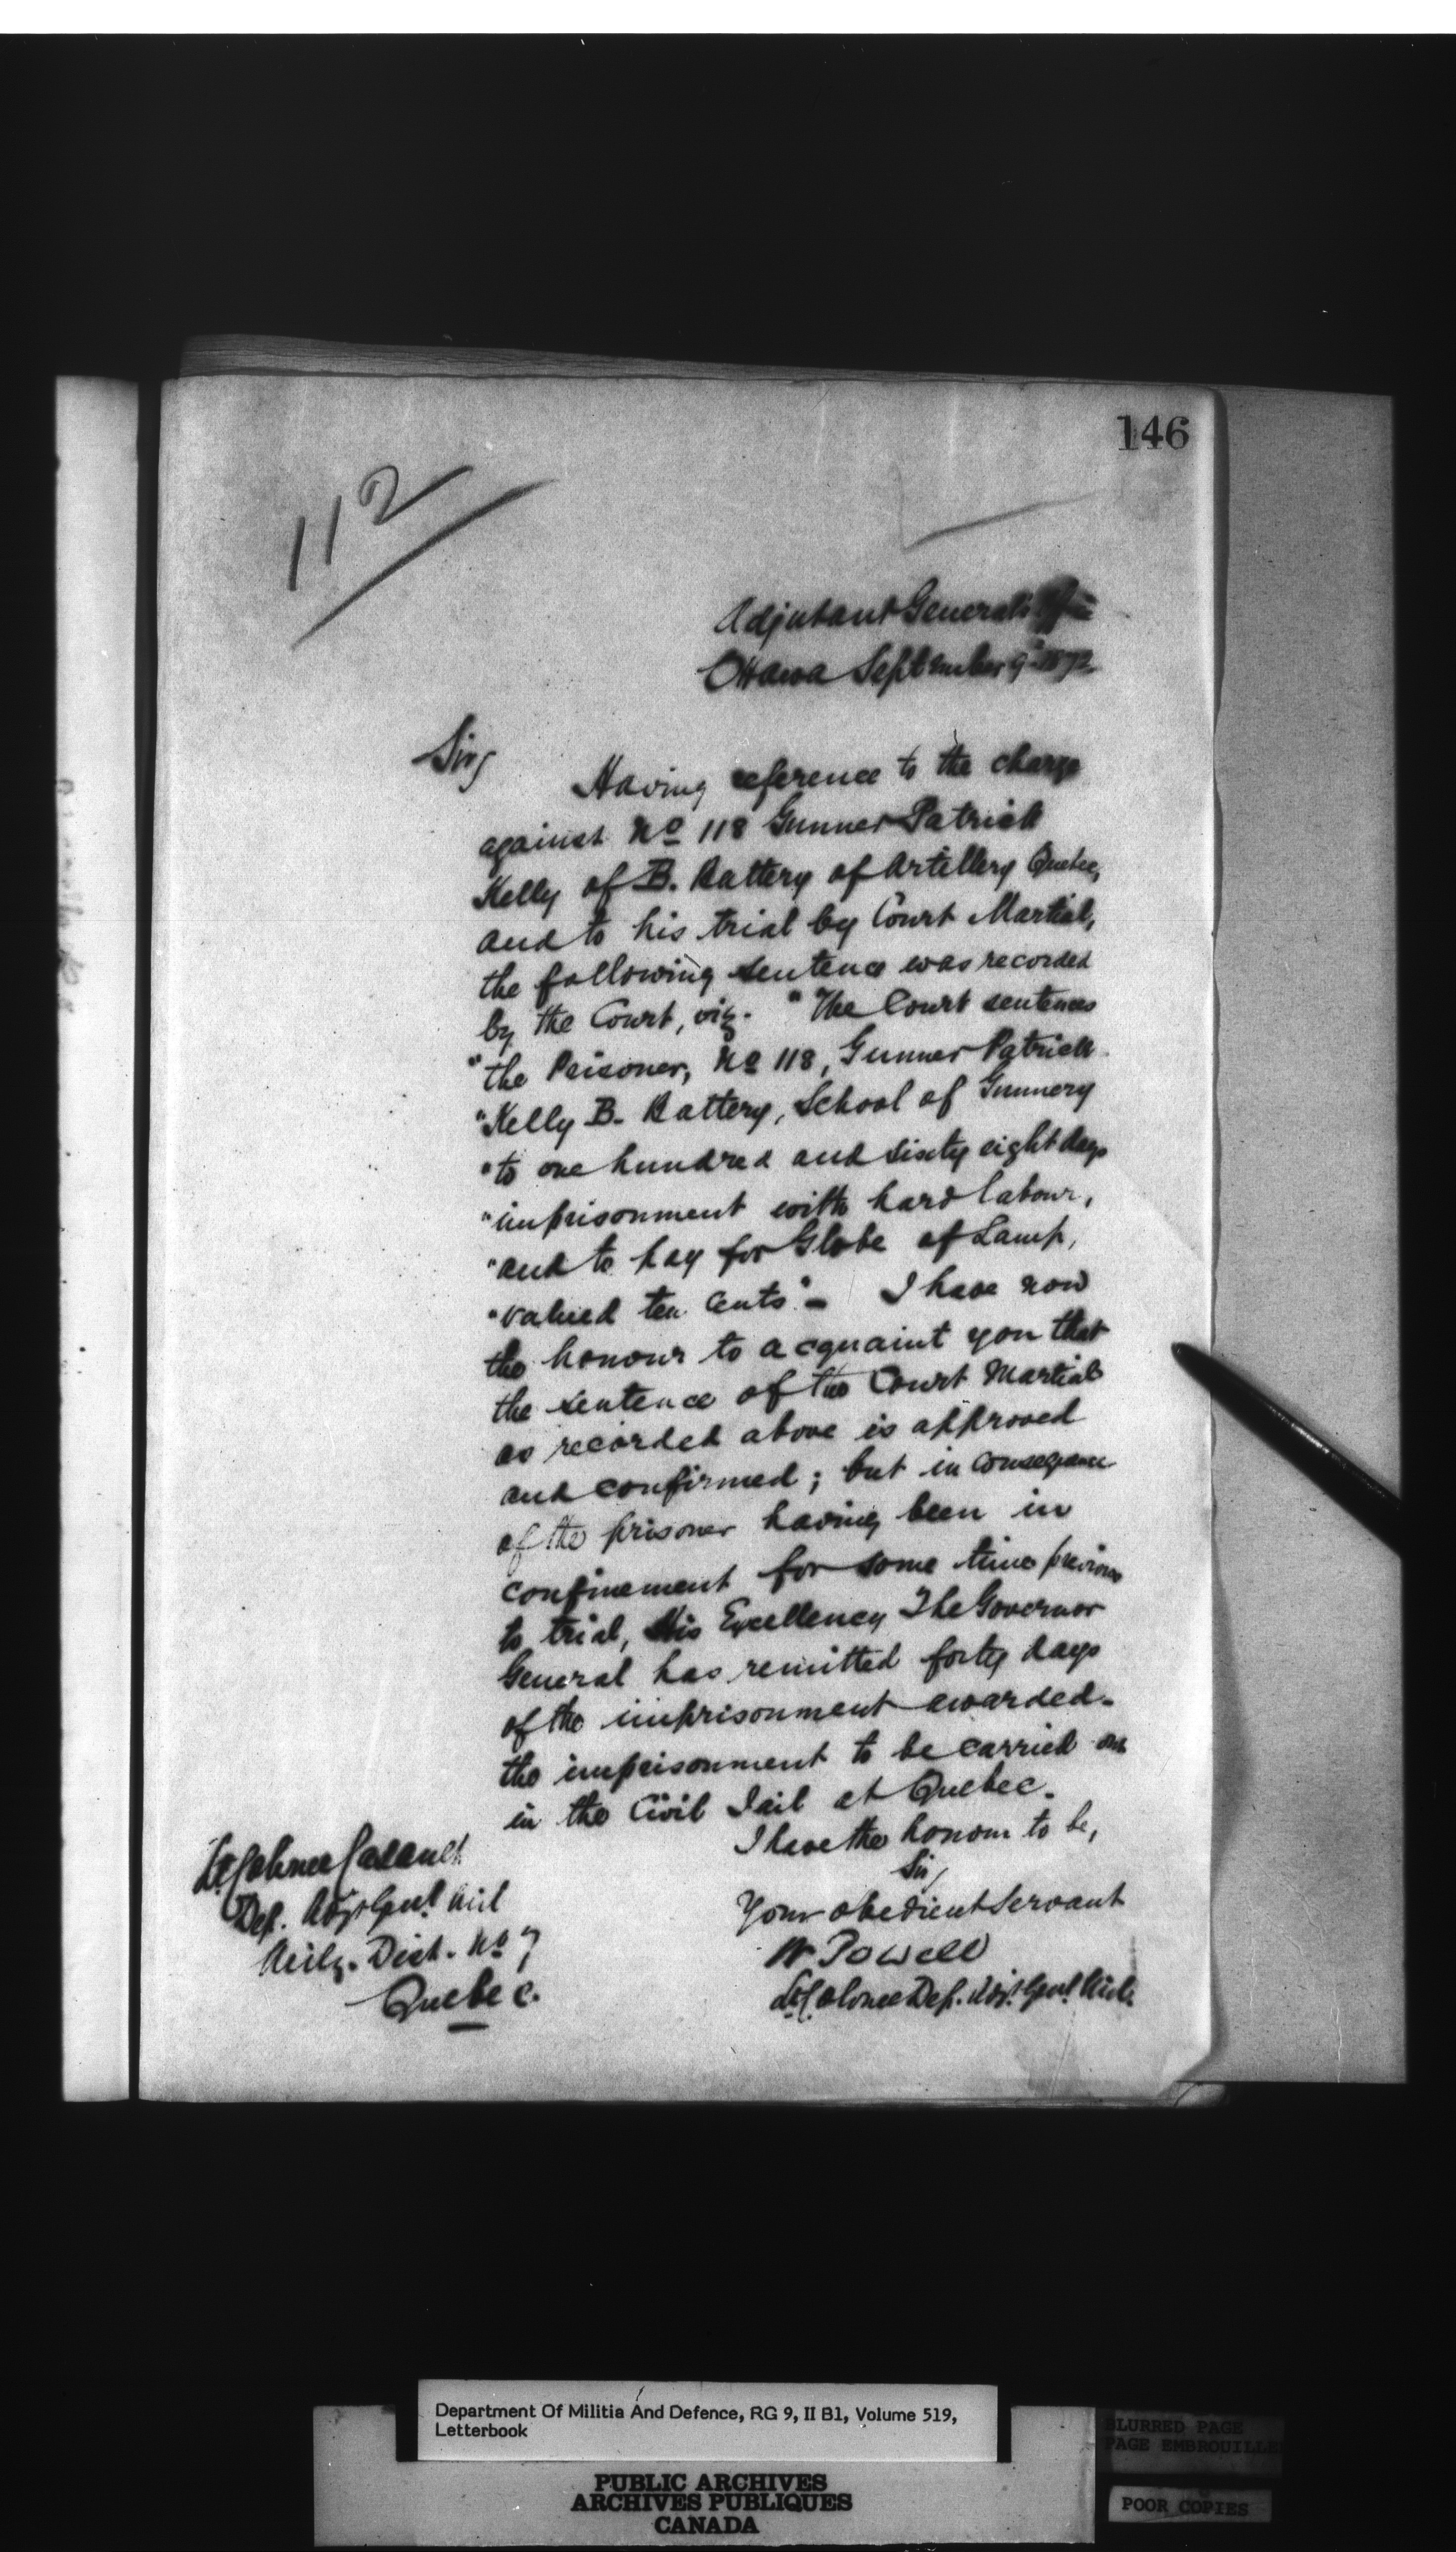 146
112
Adjutant General's Office
Ottawa September 9th 1872
Sir,
Having reference to the charge
against No 118 Gunner Patrick
Kelly of B. Battery of Artillery Quebec,
and to his trial by Court Martial,
the following sentence was recorded
by the Court, viz. "The Court sentences
"the Prisoner, No 118, Gunner Patrick
"Kelly B. Battery, School of Gunnery
"to one hundred and sixty eight days
"imprisonment with hard labour,
"and to pay for Globe of Lamp,
"valued ten cents" - I have now
the honour to acquaint you that
the sentence of the Court Martial
as recorded above is approved
and confirmed; but in consequence
of the prisoner having been in
confinement for some time previous
to trial, His Excellency The Governor
General has remitted forty days
of the imprisonment awarded -
the imprisonment to be carried out
in the Civil Jail at Quebec.
I have the honour to be,
Sir,
Your obedient Servant
W. Powell
Lt Colonel Dep. Adjt Genl Mil.
Lt Colonel Casault
Dep. Adjt Genl Mil
Mily. Dist. No 7
Quebec.
Department Of Militia And Defence, RG 9, II B1, Volume 519,
Letterbook
PUBLIC ARCHIVES
ARCHIVES PUBLIQUES
CANADA
BLURRED PAGE
PAGE EMBROUILLE
POOR COPIES